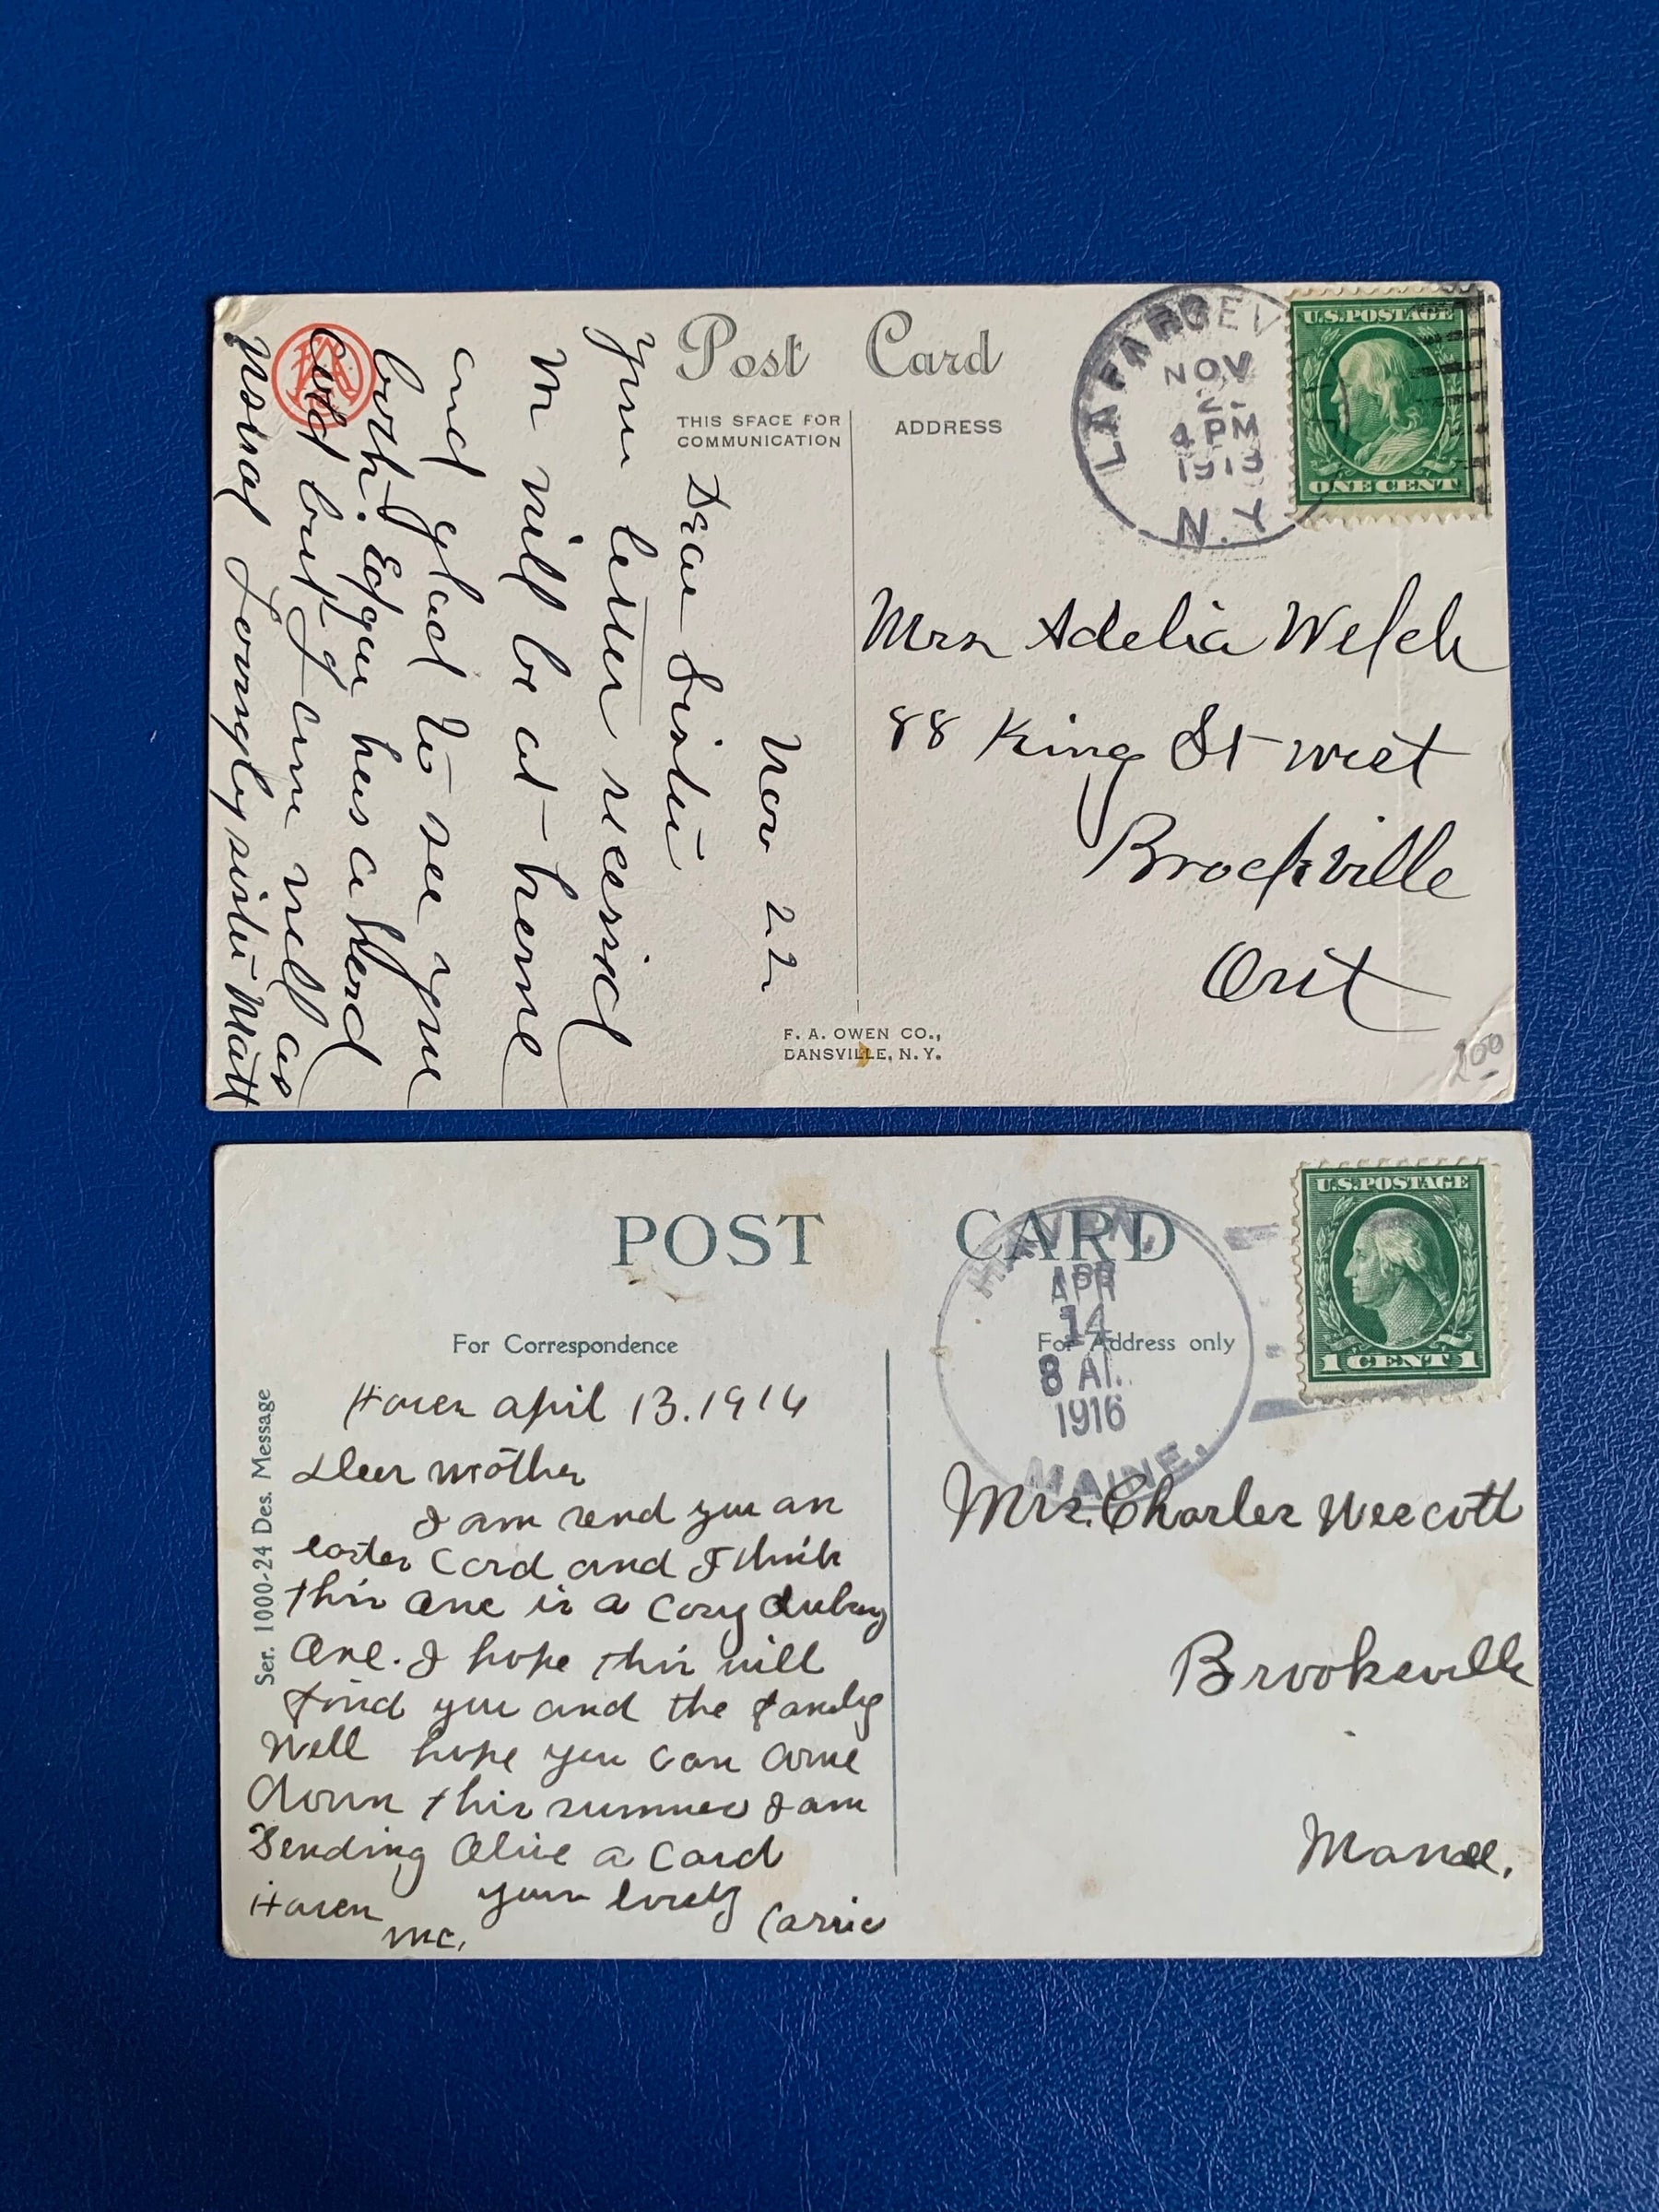 Post Card
THIS SPACE FOR
COMMUNICATION
ADDRESS
LAFARGEV
NOV
2
4 PM
1913
N.Y
U.S. POSTAGE
ONE CENT
Nov 22
Dear Sister
your letter received
will be at home
and glad to see you
both. Edgar has a
Cold but I am well as
usual Lovingly sister Matt
Mrs Adelia Welch
88 King St west
Brockville
Ont
F. A. OWEN CO.,
DANSVILLE, N.Y.
200
POST CARD
For Correspondence
For Address only
HAVEN,
APR
14
8 A
1916
MAINE.
U.S. POSTAGE
1 CENT 1
Ser. 1000-24 Des. Message
Haven april 13. 1916
Deer mother
I am send you an
easter Card and I think
this one is a cozy
one. I hope this will
find you and the family
Well hope you can come
down this summer I am
Sending Alice a Card
your lovely Carrie
Haven
Me.
Mrs. Charles Wescott
Brooksville